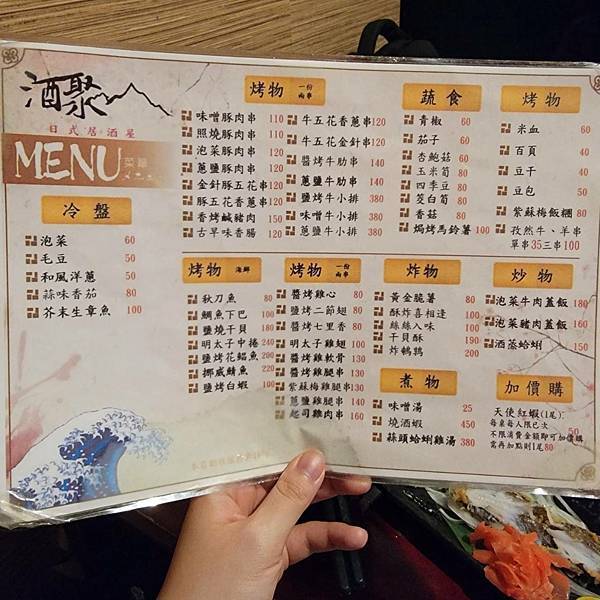 酒聚
日式居酒屋
MENU
冷盤
泡菜 60
毛豆 50
和風洋蔥 50
蒜味香茄 80
芥末生章魚 100
烤物 一份兩串
味噌豚肉串 110
照燒豚肉串 110
泡菜豚肉串 120
蔥鹽豚肉串 120
金針豚五花串 120
豚五花香蔥串 120
香烤鹹豬肉 150
古早味香腸 120
牛五花香蔥串 120
牛五花金針串 120
醬烤牛肋串 140
蔥鹽牛肋串 140
鹽烤牛小排 380
味噌牛小排 380
蔥鹽牛小排 380
蔬食
青椒 60
茄子 60
杏鮑菇 60
玉米筍 80
四季豆 80
筊白筍 80
香菇 80
焗烤馬鈴薯 100
烤物
米血 40
百頁 40
豆干 40
豆包 50
紫蘇梅飯糰 80
孜然牛、羊串
單串35三串100
烤物 海鮮
秋刀魚 80
鯛魚下巴 100
鹽燒干貝 180
明太子中捲 240
鹽烤花鯧魚 200
挪威鯖魚 160
鹽烤白蝦 100
烤物 一份兩串
醬烤雞心 80
鹽烤二節翅 80
醬烤七里香 80
明太子雞翅 100
鹽烤雞軟骨 130
醬烤雞腿串 130
紫蘇梅雞腿串 130
蔥鹽雞腿串 140
起司雞肉串 160
炸物
黃金脆薯 80
酥炸喜相逢 100
絲絲入味 100
干貝酥 190
炸鵪鶉 220
炒物
泡菜牛肉蓋飯 180
泡菜豬肉蓋飯 160
酒蒸蛤蜊 150
煮物
味噌湯 25
燒酒蝦 450
蒜頭蛤蜊雞湯 380
加價購
天使紅蝦(1尾)
每桌每人限乙次 50
不限消費金額即可加價購
需再加點則1尾80